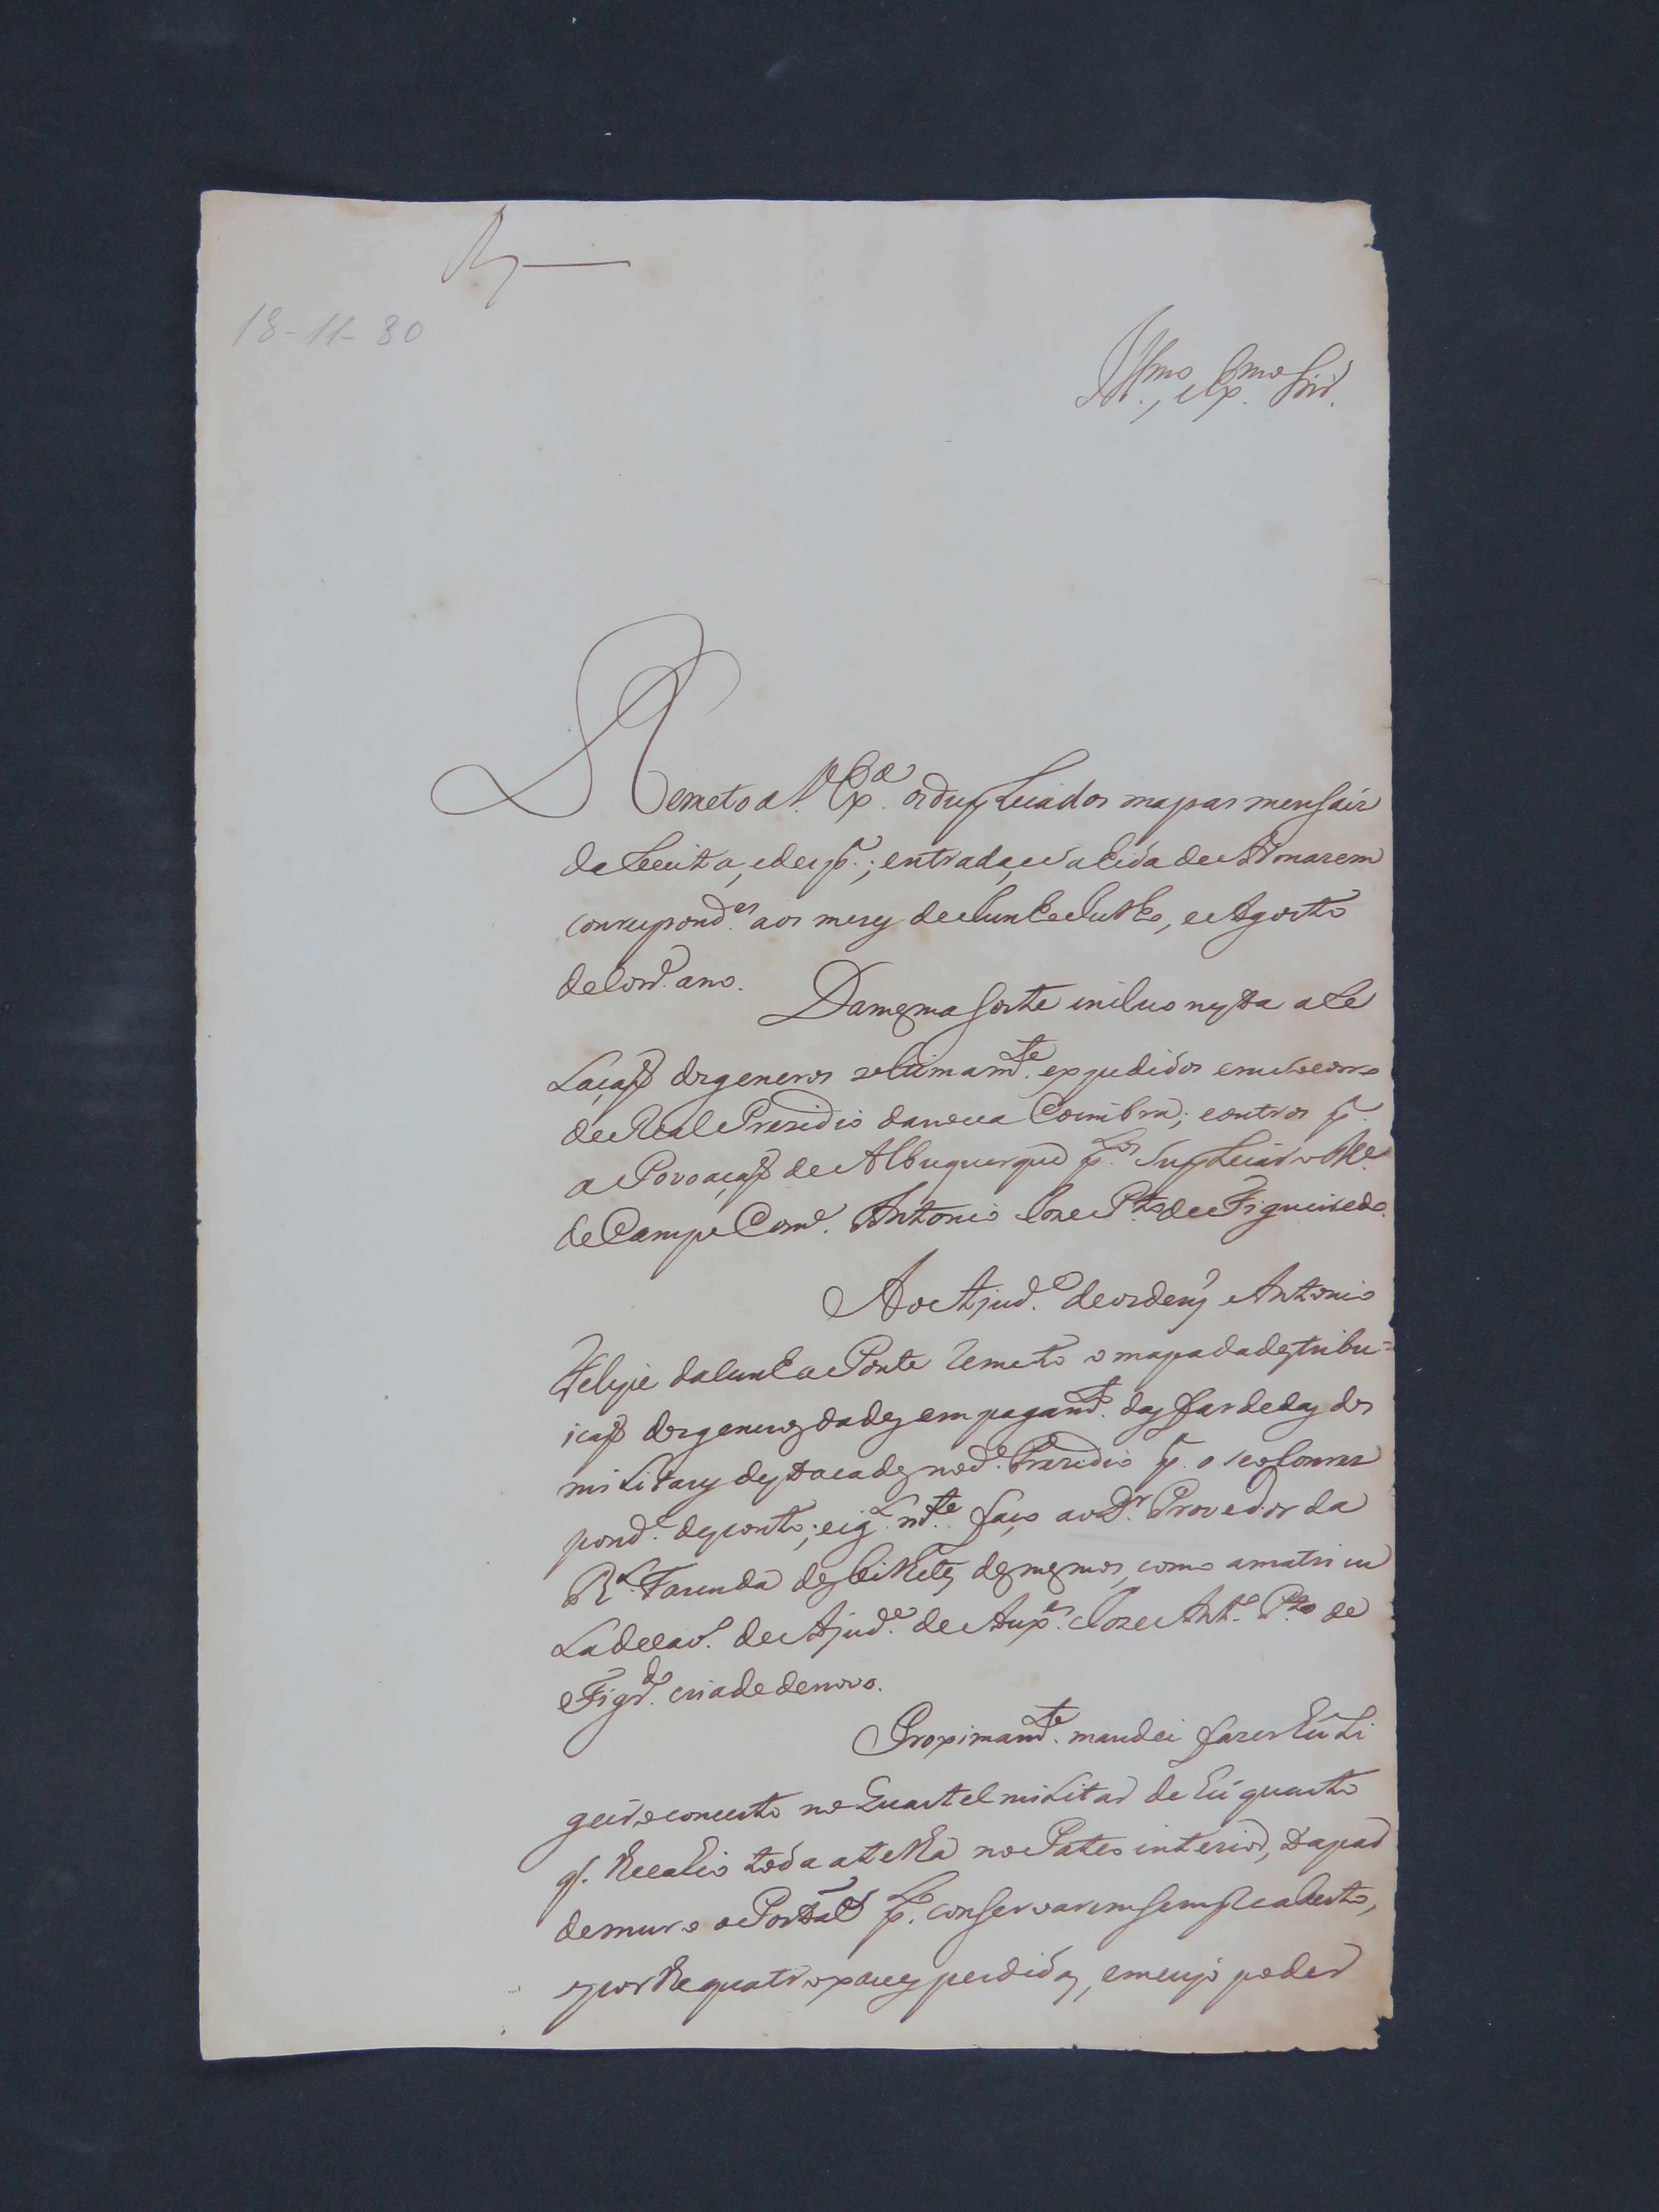 R.
18-11-80
Ill.mo, e Ex.mo Snr.
Remeto a V. Ex.a os dupLicados mapas mensais
da Receita, e desp.a; entrada, e sahida do Armazem
conrespond.es aos mezes de Junho Julho, e Agosto
do Corr.e ano.
Da mesma sorte incluo nesta a Re
Laçaõ dos generos ultimam.te expedidos em socorro
do Real Prezidio da nova Coimbra; e outros p.a
a Povoaçaõ de Albuquerque p.los supLicar o M.e
de Campo Com.e Antonio Joze P.to de Figueiredo.
Ao Ajud.e de ordens Antonio
Felipe da Cunha Ponte remeto o mapa da destribu=
içaõ dos generos dados em pagam.to das fardas dos
militares destacados no d.o Prezidio p.a o seo Conrez
pond.e desconto; e ig.l m.te faço ao D.r Provedor da
R.l Fazenda dos bilhetes dos mesmos, como a matricu
La do Cav.o do Ajud.e de Aux.es Joze Ant.o P.to de
Figr.do criado de novo.
Proximam.te mandei fazer hu Li
geiro concerto no Quartel militar de hu quarto
q. recahio toda a telha no Pateo interior, tapar
de muro o Portaõ p.lo conservarem sempre aberto,
e por lhe quatro xaves perdidas, em cujo poder